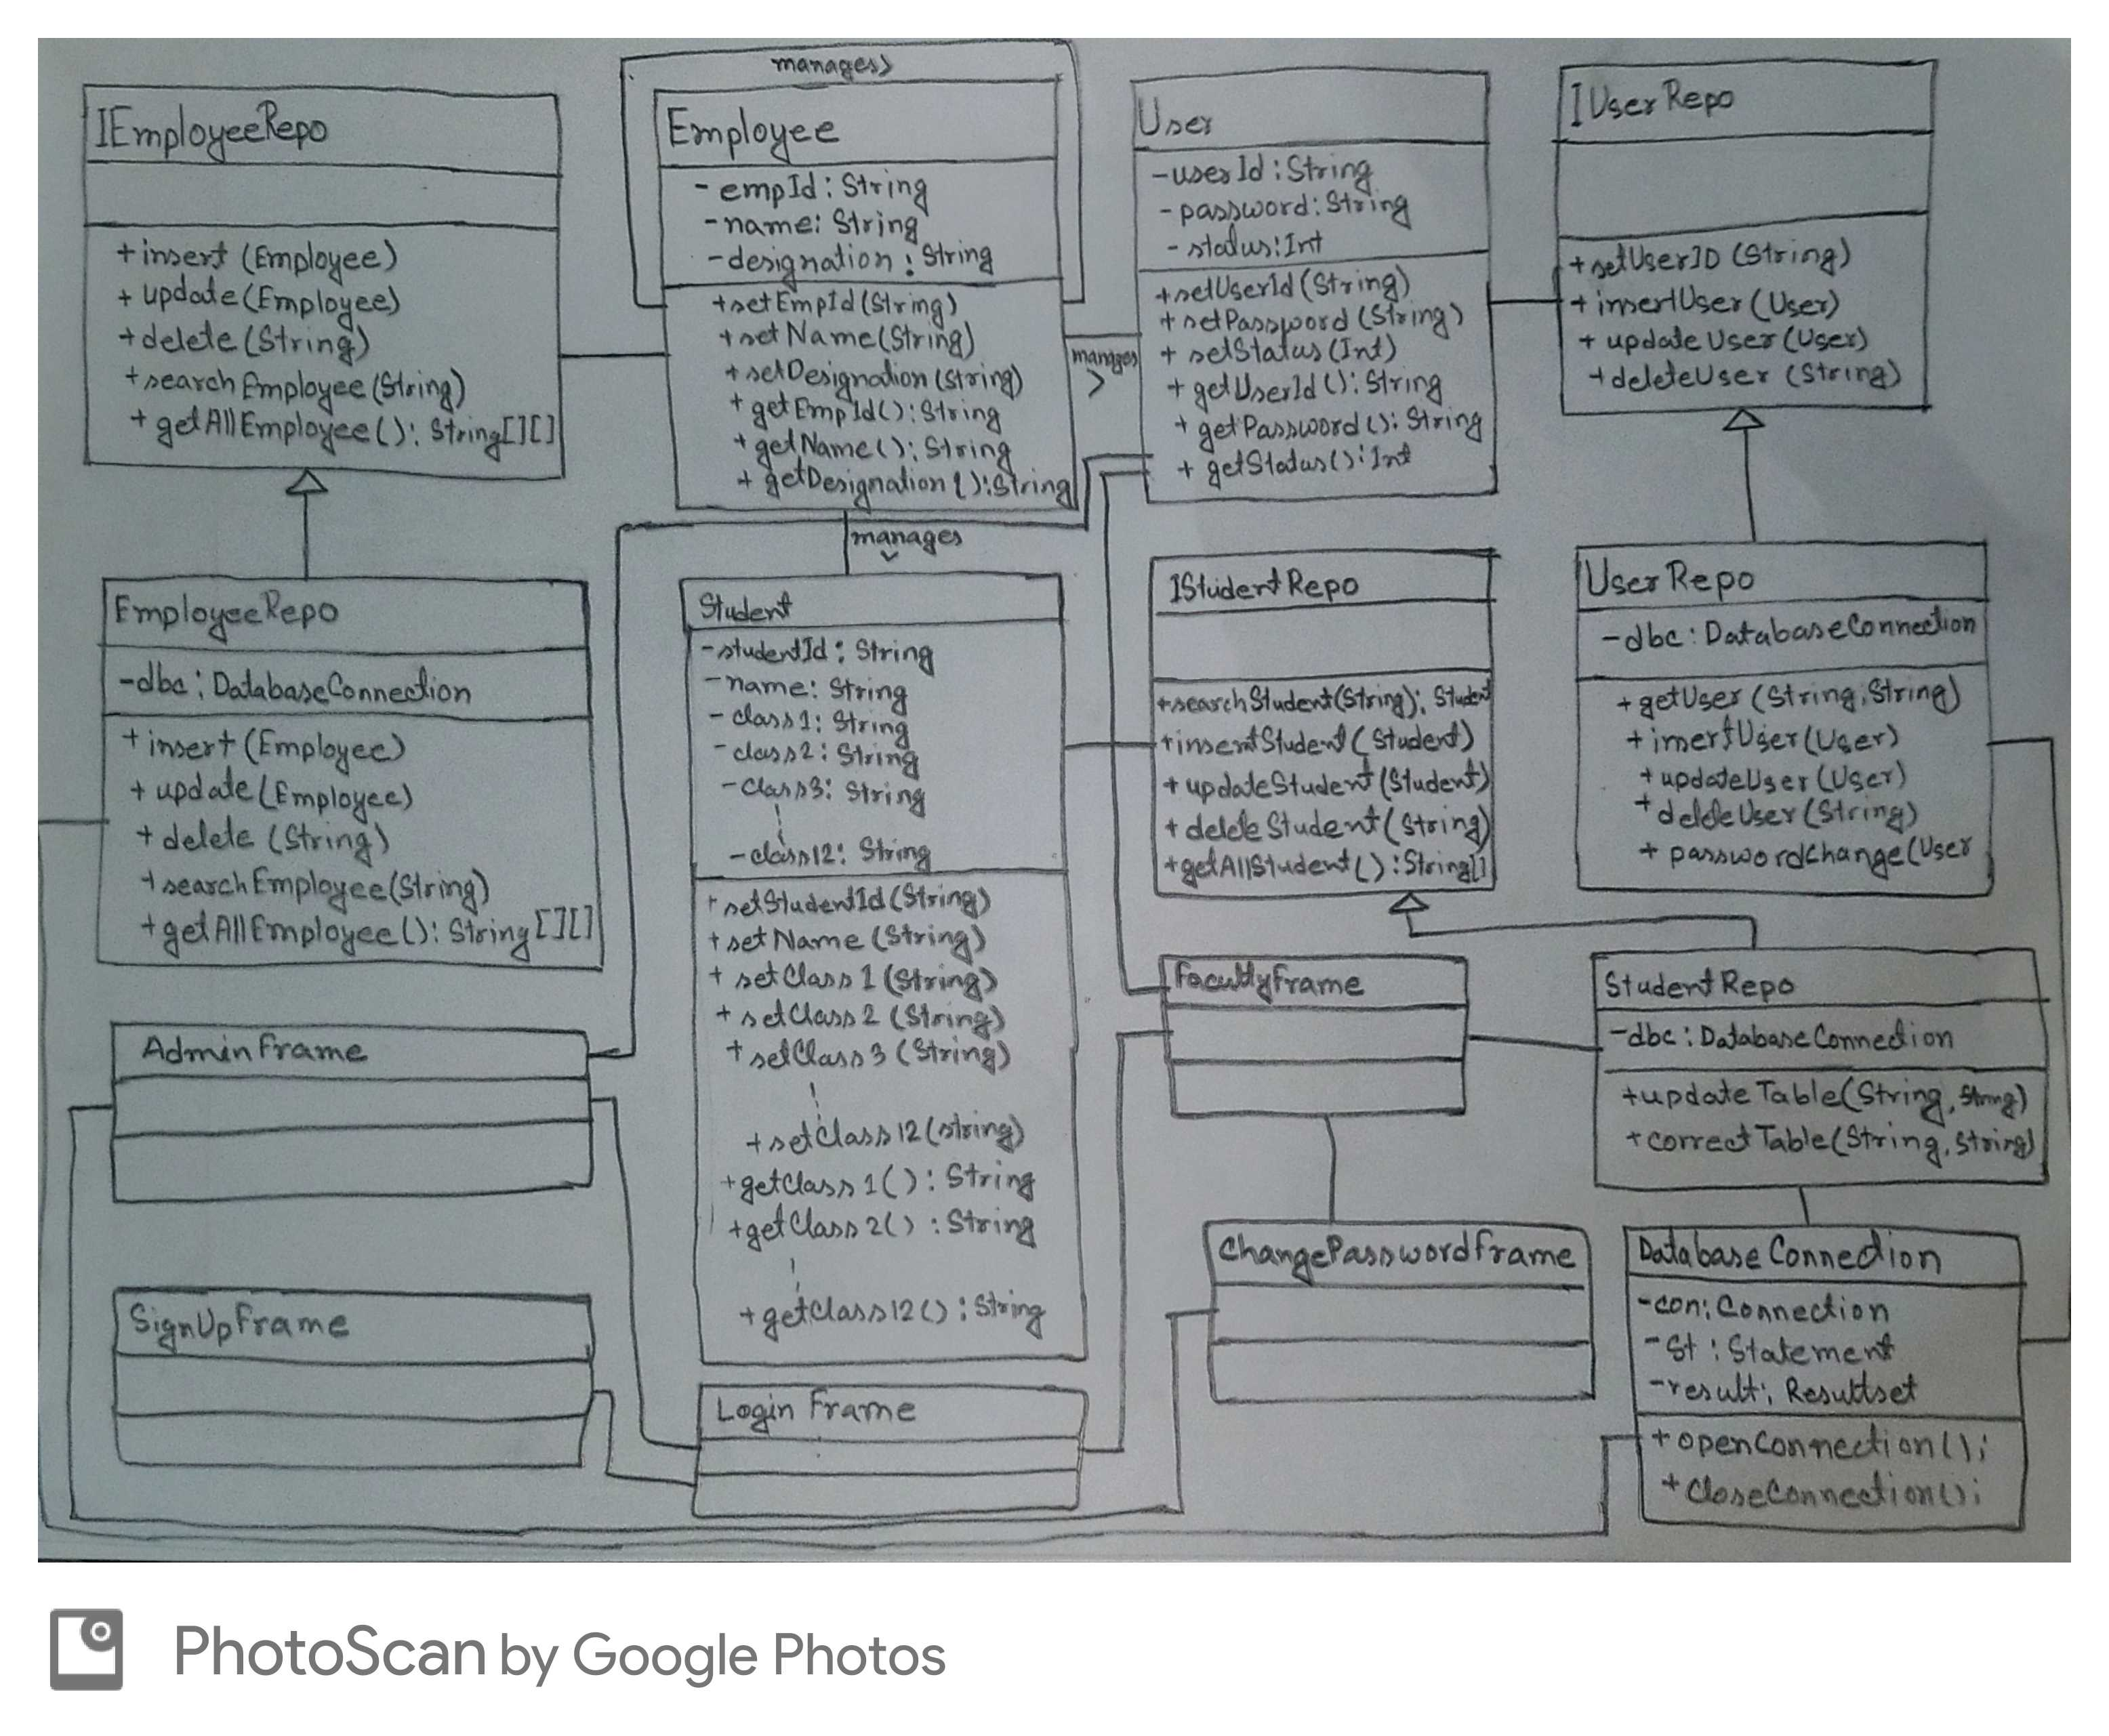 manages>
IEmployeeRepo
+insert (Employee)
+ update(Employee)
+delete(String)
+searchEmployee(String)
+ getAllEmployee(): String[][]
Employee
- empId: String
- name: String
- designation: String
+setEmpId(String)
+setName(String)
+setDesignation(String)
+getEmpId(): String
+getName(): String
+ getDesignation(): String
manages
>
User
-userId: String
- password: String
- status: Int
+setUserId(String)
+ setPassword(String)
+ setStatus(Int)
+ getUserId(): String
+ getPassword(): String
+ getStatus(): Int
IUserRepo
+setUserID (String)
+ insertUser (User)
+ updateUser (User)
+deleteUser (String)
manages
EmployeeRepo
-dbc: DatabaseConnection
+insert (Employee)
+ update(Employee)
+ delete (String)
+searchEmployee(String)
+getAllEmployee(): String[][]
Student
-studentId: String
-name: String
- class1: String
-class2: String
-class3: String
-class12: String
+setStudentId(String)
+setName (String)
+ setClass 1 (String)
+ setClass 2 (String)
+ setClass 3 (String)
+setClass12(string)
+getClass 1(): String
+getClass 2() : String
+getClass12() : String
IStudentRepo
+searchStudent(String): Student
+insertStudent(Student)
+ updateStudent(Student)
+ deleteStudent(String)
+getAllStudent(): String[]
UserRepo
-dbc: DatabaseConnection
+getUser (String, String)
+insertUser(User)
+updateUser(User)
+ deleteUser(String)
+ passwordChange(User
FacultyFrame
StudentRepo
-dbc: DatabaseConnection
+updateTable(String, String)
+correctTable(String, String)
AdminFrame
ChangePasswordFrame
DatabaseConnection
-con: Connection
-St : Statement
-result: Resultset
+openConnection();
+CloseConnection();
SignUpFrame
Login Frame
PhotoScan by Google Photos